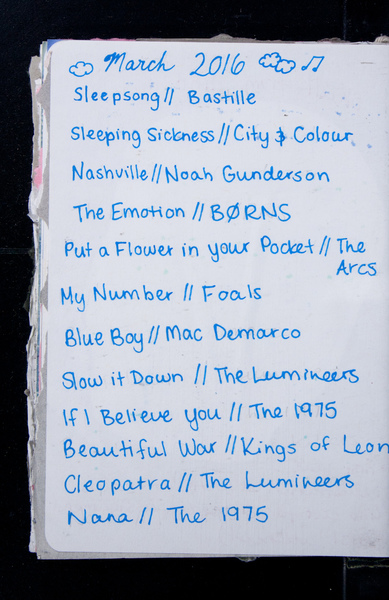 March 2016
Sleepsong // Bastille
Sleeping Sickness // City & Colour
Nashville // Noah Gunderson
The Emotion // BØRNS
Put a Flower in your Pocket // The
Arcs
My Number // Foals
Blue Boy // Mac Demarco
Slow it Down // The Lumineers
If I Believe You // The 1975
Beautiful War // Kings of Leon
Cleopatra // The Lumineers
Nana // The 1975